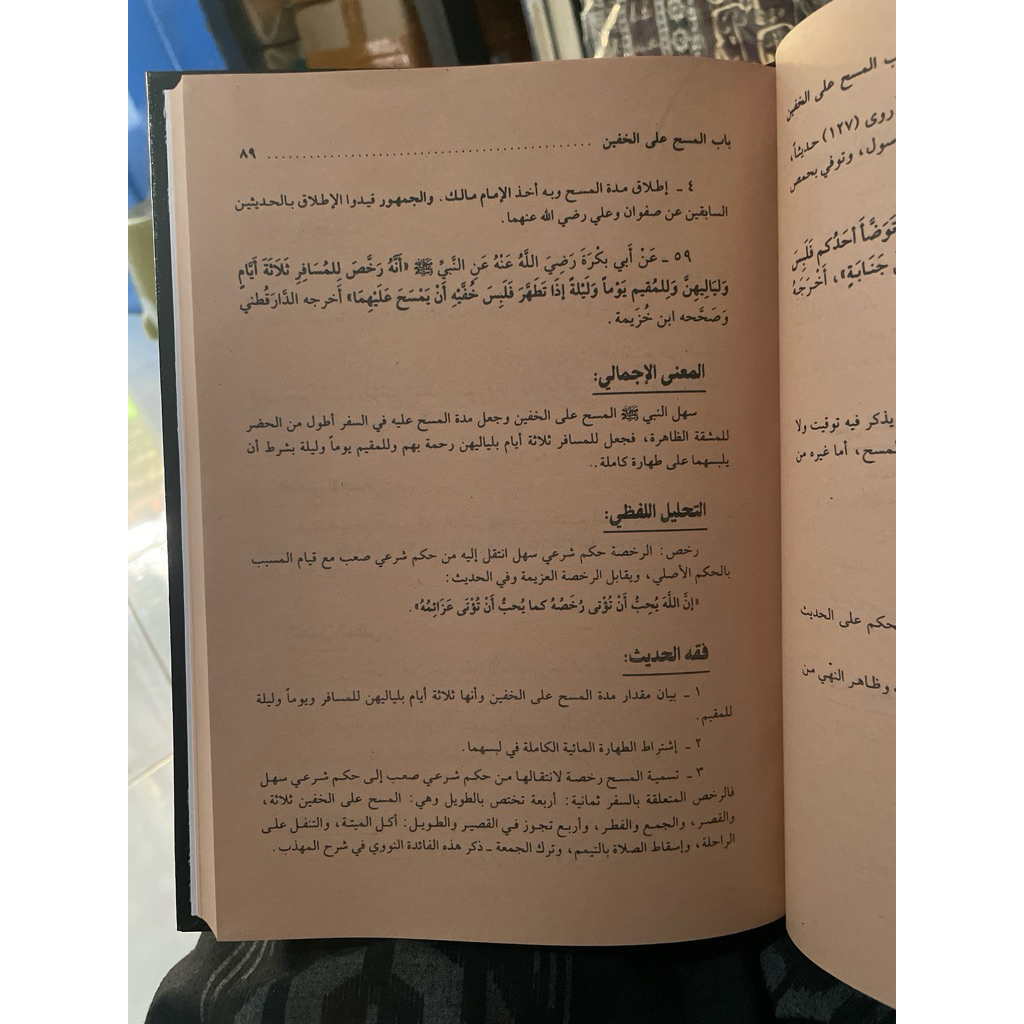 باب المسح على الخفين ................................................ ٨٩
٤ ـ إطلاق مدة المسح وبه أخذ الإمام مالك. والجمهور قيدوا الإطلاق بالحديثين
السابقين عن صفوان وعلي رضي الله عنهما.
٥٩ ـ عَنْ أَبي بَكْرَةَ رَضِيَ اللَّهُ عَنْهُ عَنِ النَّبيِّ ﷺ «أَنَّهُ رَخَّصَ لِلمُسَافِرِ ثَلَاثَةَ أَيَّامٍ
وَلَيَاليهِنَّ وَلِلمُقيم يَوْماً وَلَيْلةً إذَا تَطَهَّرَ فَلَبِسَ خُفَّيْهِ أَنْ يَمْسَحَ عَلَيْهِمَا» أخرجه الدَّارَقُطني
وَصَحَّحه ابن خُزَيمة.
المعنى الإجمالي:
سهل النبي ﷺ المسح على الخفين وجعل مدة المسح عليه في السفر أطول من الحضر
للمشقة الظاهرة، فجعل للمسافر ثلاثة أيام بلياليهن رحمة بهم وللمقيم يوماً وليلة بشرط أن
يلبسهما على طهارة كاملة..
التحليل اللفظي:
رخص: الرخصة حكم شرعي سهل انتقل إليه من حكم شرعي صعب مع قيام المسبب
بالحكم الأصلي، ويقابل الرخصة العزيمة وفي الحديث:
«إنَّ اللَّهَ يُحِبُّ أَنْ تُؤْتى رُخَصُهُ كما يُحبُّ أَنْ تُؤْتَى عَزَائِمُهُ».
فقه الحديث:
١ ـ بيان مقدار مدة المسح على الخفين وأنها ثلاثة أيام بلياليهن للمسافر ويوماً وليلة
للمقيم.
٢ ـ إشتراط الطهارة المائية الكاملة في لبسهما.
٣ ـ تسمية المسح رخصة لانتقالها من حكم شرعي صعب إلى حكم شرعي سهل
فالرخص المتعلقة بالسفر ثمانية: أربعة تختص بالطويل وهي: المسح على الخفين ثلاثة،
والقصر، والجمع والفطر، وأربع تجوز في القصير والطويل: أكل الميتة، والتنفل على
الراحلة، وإسقاط الصلاة بالتيمم، وترك الجمعة ـ ذكر هذه الفائدة النووي في شرح المهذب.
المسح على الخفين
روى (١٢٧) حديثاً،
وتوفي بحمص
تَوَضَّأَ أَحَدُكم فَلَبِسَ
جَنَابَةٍ»، أَخْرَجَهُ
يذكر فيه توقيت ولا
أما غيره من
على الحديث
وظاهر النهي من